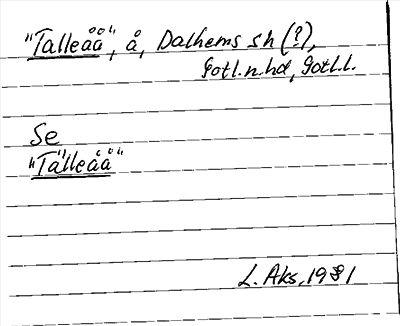 "Talleåå", å, Dalhems sh (?),
Gotl.n.hd, Gotl.l.
Se
"Tälleåå"
L. Aks, 1981